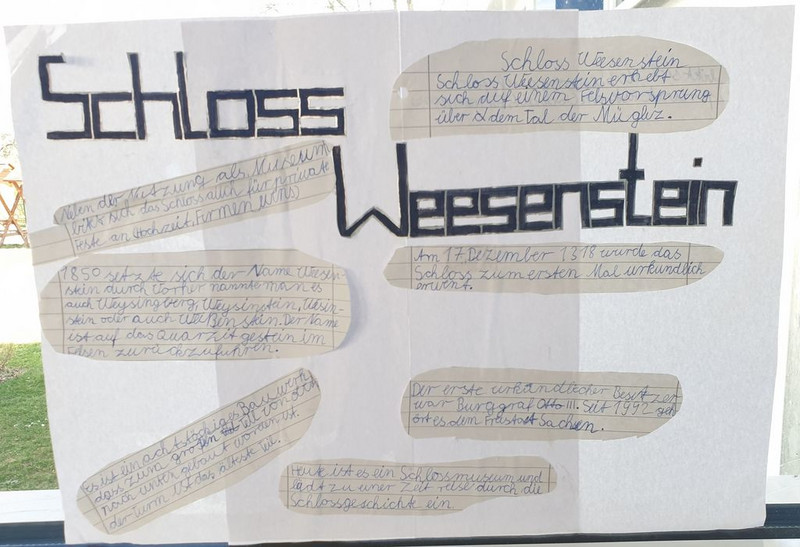 Schloss
Weesenstein
Schloss Weesenstein
Schloss Weesenstein erhebt
sich auf einem Felsvorsprung
über dem Tal der Mügliz.
Neben der Nutzung als Museum
sich das Schloss auch für private
Feste an Hochzeit, Firmen
Am 17. Dezember 1318 wurde das
Schloss zum ersten Mal urkundlich
erwent.
1850 setzte sich der Name Weesen-
stein durch Vorher nannte man es
auch Weysingberg, Weysinstein, Wesin-
stein oder auch Weißenstein. Der Name
ist auf das Quarzitgestein im
Felsen zurückzuführen.
Der erste urkundlicher Besitzer
war Burggraf Otto III. Seit 1992 geh
ört es dem Freistaat Sachsen.
Es ist ein achtstöckiges Bauwerk
dass zum großen teil von oben
nach unten gebaut worden ist.
der Turm ist das älteste Teil.
Heute ist es ein Schlossmuseum und
lädt zu einer Zeit reise durch die
Schlossgeschichte ein.